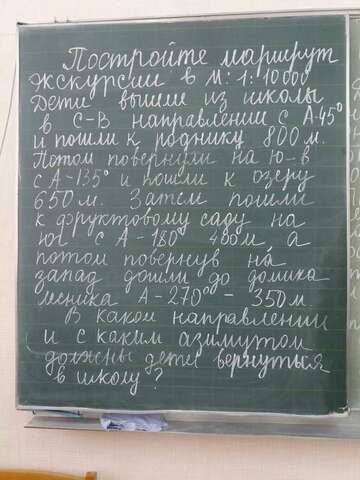 Постройте маршрут
экскурсии в М: 1:10000
Дети вышли из школы
в С-В направлении с А 45°
и пошли к роднику 800 м.
Потом повернули на ю-в
с А-135° и пошли к озеру
650 м. Затем пошли
к фруктовому саду на
юг с А-180° 400 м, а
потом повернув на
запад дошли до домика
лесника А-270° - 350 м
В каком направлении
и с каким азимутом
должны дети вернуться
в школу?